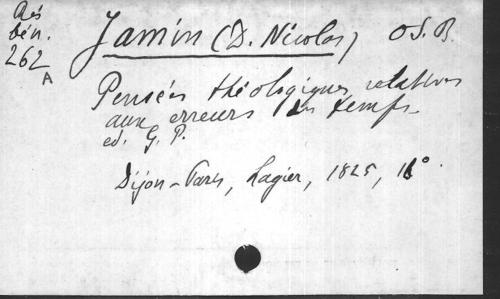 Rés
bén.
262
A
Jamin (D. Nicolas) O.S.B.
Pensées théologiques relatives
aux erreurs du temps
ed. G. P.
Dijon-Paris, Lagier, 1825, 16°.